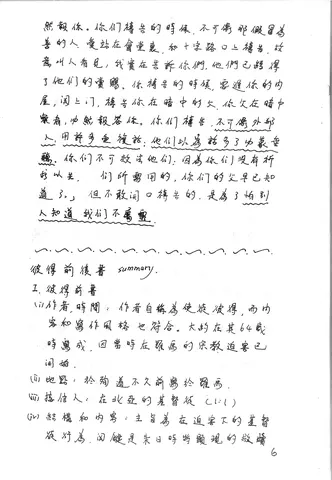 然報你。你们禱告的時候，不可像那假冒為
善的人，愛站在會堂裏，和十字路口上禱告，故
意叫人看見，我實在告訴你們，他們已経得
了他们的賞賜。你禱告的時候，要進你的内
屋，闪上门，禱告你在暗中的父，你父在暗中
察看，必然報答你。你们禱告，不可像外邦
人，用許多重複話，他们以為話多了必蒙垂
聽。你们不可效法他们；因為你们没有祈
求以先，你们所需用的，你们的父早已知
道了。」但不敢闭口禱告的，是為了怕别
人知道我们不属灵
彼得前後書 summary.
I. 彼得前書
(i) 作者，時間：作者自稱為使徒彼得，而内
容和寫作風格也符合。大約在其64歲
時寫成，因當時在羅馬的宗教迫害已
问始。
(ii) 地點：於殉道不久前寫於羅馬。
(iii) 接信人：在北亞的基督徒 (1:1)
(iv) 結構和内容：主旨為在迫害下的基督
徒打為，因鍵是末日時將顯現的救贖
6